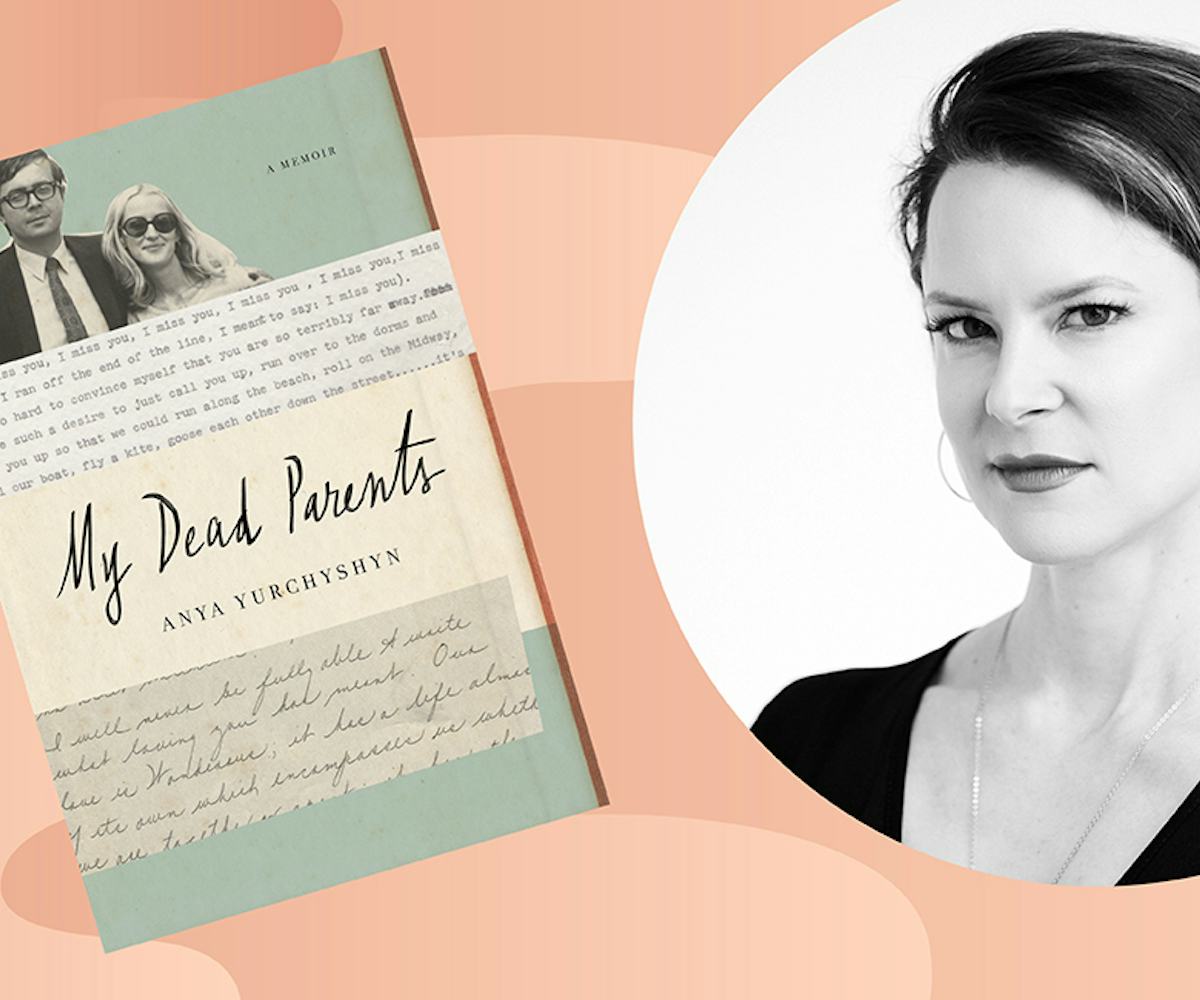 A MEMOIR
ss you, I miss you, I miss you, I miss you , I miss you,I miss
I ran off the end of the line, I meant to say: I miss you).
o hard to convince myself that you are so terribly far away.
e such a desire to just call you up, run over to the dorms and
you up so that we could run along the beach, roll on the Midway,
l our boat, fly a kite, goose each other down the street......it's
My Dead Parents
ANYA YURCHYSHYN
I will never be fully able to write
what loving you has meant. Our
love is Wonderous; it has a life almos
f its own which encompasses us wheth
we are together or apart